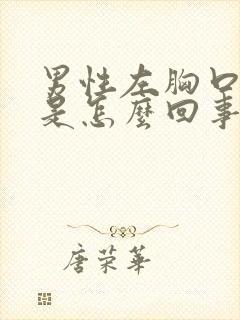 男性左胸口
是怎麼回事
唐荣華